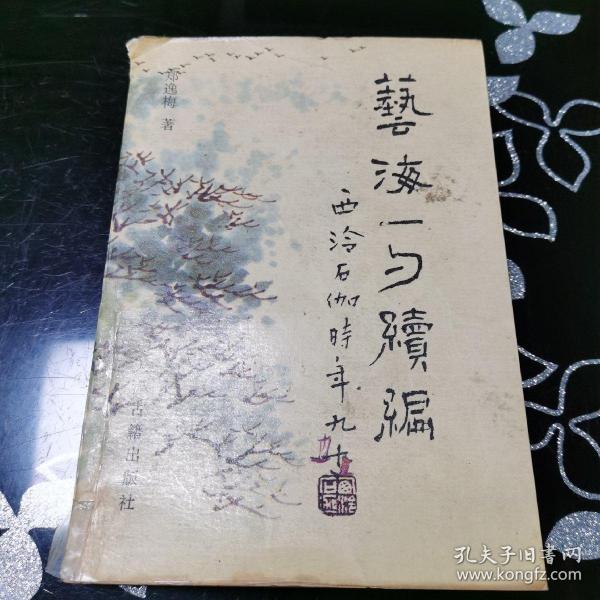 藝海一勺續編
西泠石伽時年九十
郑逸梅 著
古籍出版社
孔夫子旧书网
www.kongfz.com